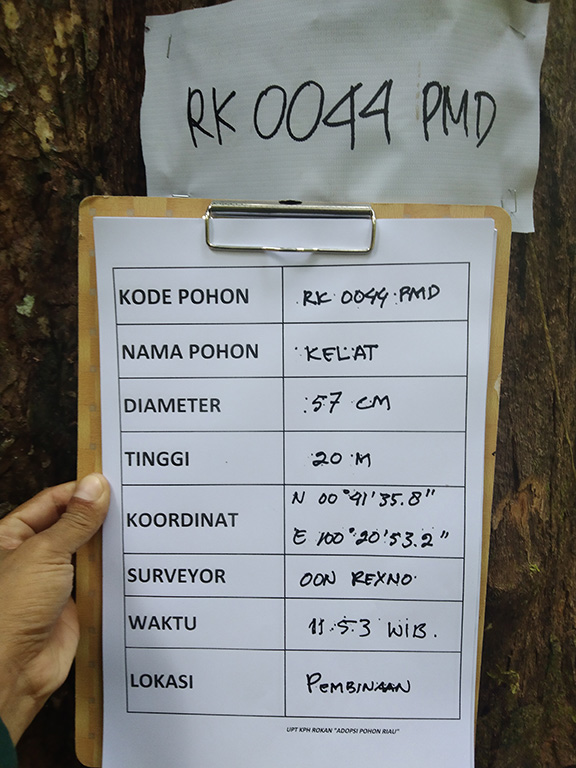 RK 0044 PMD
KODE POHON RK 0044 PMD
NAMA POHON KELAT
DIAMETER 57 CM
TINGGI 20 M
KOORDINAT N 00°41'35.8"
E 100°20'53.2"
SURVEYOR OON REXNO
WAKTU 11.53 WIB.
LOKASI PEMBINAAN
UPT KPH ROKAN "ADOPSI POHON RIAU"